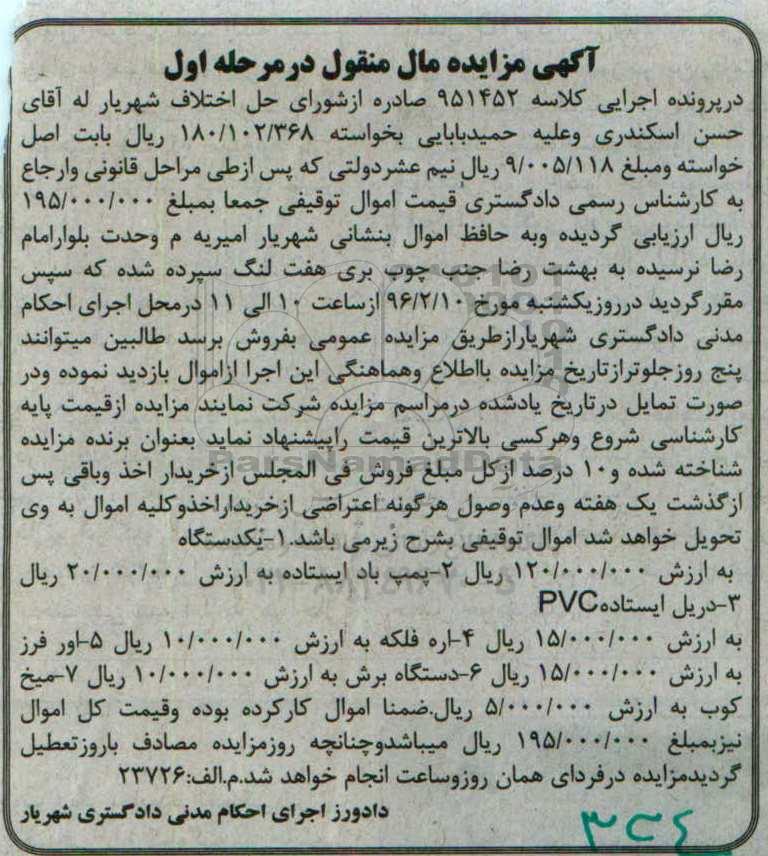 آگهی مزایده مال منقول درمرحله اول
درپرونده اجرایی کلاسه ۹۵۱۴۵۲ صادره ازشورای حل اختلاف شهریار له آقای
حسن اسکندری وعلیه حمیدبابایی بخواسته ۱۸۰/۱۰۲/۳۶۸ ریال بابت اصل
خواسته ومبلغ ۹/۰۰۵/۱۱۸ ریال نیم عشردولتی که پس ازطی مراحل قانونی وارجاع
به کارشناس رسمی دادگستری قیمت اموال توقیفی جمعا بمبلغ ۱۹۵/۰۰۰/۰۰۰
ریال ارزیابی گردیده وبه حافظ اموال بنشانی شهریار امیریه م وحدت بلوارامام
رضا نرسیده به بهشت رضا جنب چوب بری هفت لنگ سپرده شده که سپس
مقررگردید درروزیکشنبه مورخ ۹۶/۲/۱۰ ازساعت ۱۰ الی ۱۱ درمحل اجرای احکام
مدنی دادگستری شهریارازطریق مزایده عمومی بفروش برسد طالبین میتوانند
پنج روزجلوترازتاریخ مزایده بااطلاع وهماهنگی این اجرا ازاموال بازدید نموده ودر
صورت تمایل درتاریخ یادشده درمراسم مزایده شرکت نمایند مزایده ازقیمت پایه
کارشناسی شروع وهرکسی بالاترین قیمت راپیشنهاد نماید بعنوان برنده مزایده
شناخته شده و۱۰ درصد ازکل مبلغ فروش فی المجلس ازخریدار اخذ وباقی پس
ازگذشت یک هفته وعدم وصول هرگونه اعتراضی ازخریداراخذوکلیه اموال به وی
تحویل خواهد شد اموال توقیفی بشرح زیرمی باشد.۱-یکدستگاه
به ارزش ۱۲۰/۰۰۰/۰۰۰ ریال ۲-پمپ باد ایستاده به ارزش ۲۰/۰۰۰/۰۰۰ ریال
۳-دریل ایستادهPVC
به ارزش ۱۵/۰۰۰/۰۰۰ ریال ۴-اره فلکه به ارزش ۱۰/۰۰۰/۰۰۰ ریال ۵-اور فرز
به ارزش ۱۵/۰۰۰/۰۰۰ ریال ۶-دستگاه برش به ارزش ۱۰/۰۰۰/۰۰۰ ریال ۷-میخ
کوب به ارزش ۵/۰۰۰/۰۰۰ ریال.ضمنا اموال کارکرده بوده وقیمت کل اموال
نیزبمبلغ ۱۹۵/۰۰۰/۰۰۰ ریال میباشدوچنانچه روزمزایده مصادف باروزتعطیل
گردیدمزایده درفردای همان روزوساعت انجام خواهد شد.م.الف:۲۳۷۲۶
دادورز اجرای احکام مدنی دادگستری شهریار
ParsNamadData